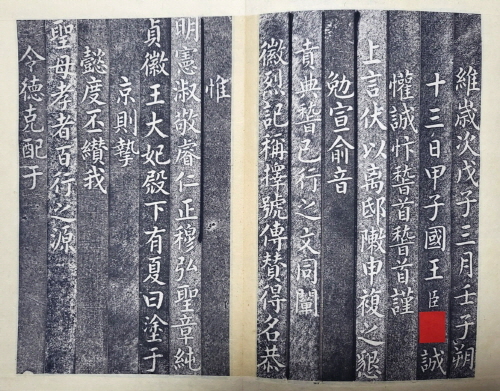 維歲次戊子三月壬子朔
十三日甲子國王臣 誠
懽誠忭稽首稽首謹
上言伏以离邸敶申複之懇
勉宣俞音
賁典稽已行之文同闡
徽烈記稱擇號傳贊得名恭
惟
明憲淑敬睿仁正穆弘聖章純
貞徽王大妃殿下有夏曰塗于
京則摯
懿度丕纘我
聖母孝者百行之源
令德克配于